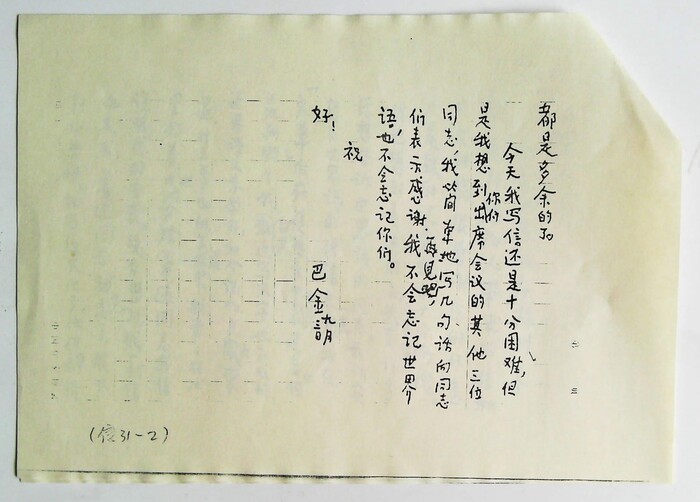 都是多余的了
今天我写信还是十分困难，但
是我想到你们出席会议的其他三位
同志，我简单地写几句话向同志
们表示感谢，再见吧，我不会忘记世界
语，也不会忘记你们。
祝
好！
巴金
九月
（信31-2）